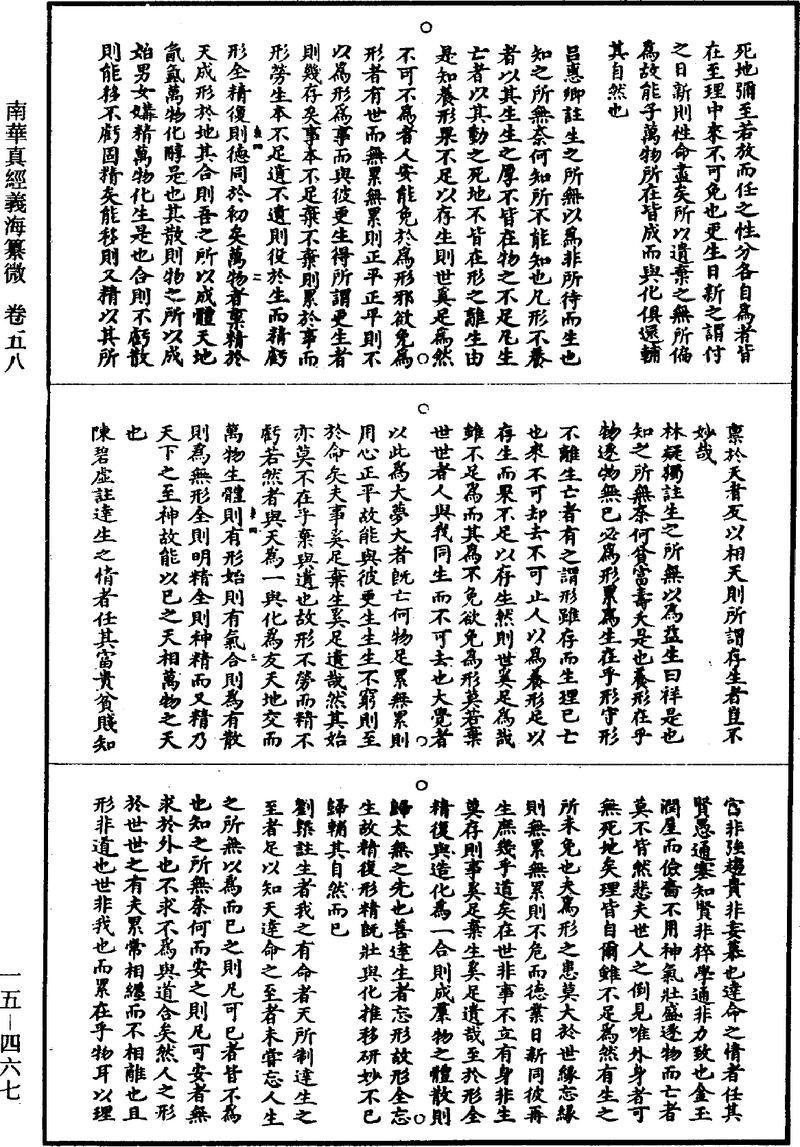 南華真經義海纂微　卷五八
一五－四六七
死地彌至若放而任之性分各自為者皆
在至理中來不可免也更生日新之謂付
之日新則性命盡矣所以遺棄之無所偏
為故能子萬物所在皆成而與化俱還輔
其自然也
呂惠卿註生之所無以為非所待而生也
知之所無奈何知所不能知也凡形不養
者以其生生之厚不皆在物之不足凡生
亡者以其動之死地不皆在形之離生由
是知養形果不足以存生則世奚足為然
不可不為者人安能免於為形邪欲免為
形者有世而無累無累則正平正平則不
以為形為事而與彼更生得所謂更生者
則幾存矣事本不足棄不棄則累於事而
形勞生本不足遺不遺則役於生而精虧
形全精復則德同於初矣萬物者稟精於
天成形於地其合則吾之所以成體天地
氤氳萬物化醇是也其散則物之所以成
始男女媾精萬物化生是也合則不虧散
則能移不虧固精矣能移則又精以其所
稟於天者反以相天則所謂存生者豈不
妙哉
林疑獨註生之所無以為益生曰祥是也
知之所無奈何貧富壽夭是也養形在乎
物逐物無已必為形累為生在乎形守形
不離生亡者有之謂形雖存而生理已亡
也來不可却去不可止人以為養形足以
存生而果不足以存生然則世奚足為哉
雖不足為而其為不免欲免為形莫若棄
世世者人與我同生而不可去也大覺者
以此為大夢大者既亡何物足累無累則
用心正平故能與彼更生生生不窮則至
於命矣夫事奚足棄生奚足遺哉然其始
亦莫不在乎棄與遺也故形不勞而精不
虧若然者與天為一與化為友天地交而
萬物生體則有形始則有氣合則為有散
則為無形全則明精全則神精而又精乃
天下之至神故能以己之天相萬物之天
也
陳碧虛註達生之情者任其富貴貧賤知
富非強趨貴非妄慕也達命之情者任其
賢愚通塞知賢非稡學通非力致也金玉
潤屋而儉嗇不用神氣壯盛逐物而亡者
莫不皆然悲夫世人之倒見唯外身者可
無死地矣理皆自爾雖不足為然有生之
所未免也夫為形之患莫大於世緣忘緣
則無累無累則不危而德業日新同彼再
生庶幾乎道矣在世非事不立有身非生
莫存則事奚足棄生奚足遺哉至於形全
精復與造化為一合則成羣物之體散則
歸太無之先也善達生者忘形故形全忘
生故精復形精既壯與化推移研妙不已
歸輔其自然而已
劉槩註生者我之有命者天所制達生之
至者足以知天達命之至者未嘗忘人生
之所無以為而已之則凡可已者皆不為
也知之所無奈何而安之則凡可安者無
求於外也不求不為與道合矣然人之形
於世世之有夫累常相纏而不相離也且
形非道也世非我也而累在乎物耳以理